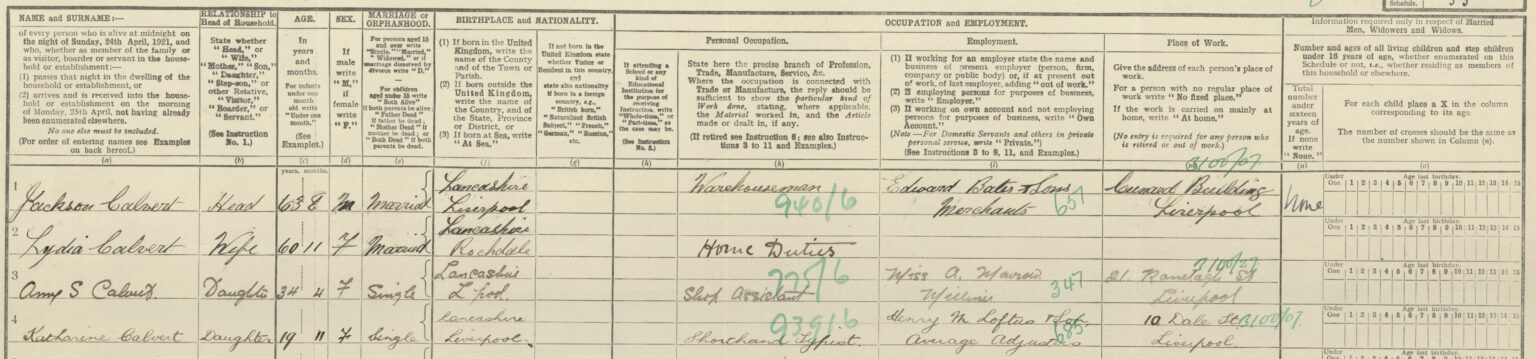 Schedule.
NAME and SURNAME:—
of every person who is alive at midnight on
the night of Sunday, 24th April, 1921, and
who, whether as member of the family or
as visitor, boarder or servant in the house-
hold or establishment:—
(1) passes that night in the dwelling of the
household or establishment, or
(2) arrives and is received into the house-
hold or establishment on the morning
of Monday, 25th April, not having already
been enumerated elsewhere.
No one else must be included.
(For order of entering names see Examples
on back hereof.)
(a)
RELATIONSHIP to
Head of Household.
State whether
"Head," or
"Wife,"
"Mother," "Son,"
"Daughter,"
"Step-son," or
other Relative,
"Visitor,"
"Boarder," or
"Servant."
(See Instruction
No. 1.)
(b)
AGE.
In
years
and
months.
For infants
under one
month old
write "Under
one month."
(See
Examples.)
(c)
years. months.
SEX.
If
male
write
"M."
If
female
write
"F."
(d)
MARRIAGE or
ORPHANHOOD.
For persons aged 15
and over write
"Single," "Married,"
"Widowed," or if
marriage dissolved by
divorce write "D."
For children
aged under 15 write
"Both Alive"
if both parents be alive;
"Father Dead"
if father be dead;
"Mother Dead" if
mother be dead; or
"Both Dead" if both
parents be dead.
(e)
BIRTHPLACE and NATIONALITY.
(1) If born in the United
Kingdom, write the
name of the County
and of the Town or
Parish.
(2) If born outside the
United Kingdom,
write the name of
the Country, and of
the State, Province
or District, or
(3) If born at Sea, write
"At Sea."
(f)
If not born in the
United Kingdom state
whether Visitor or
Resident in this country,
and
state also nationality
If born in a foreign
country, e.g.,
"British born,"
"Naturalized British
Subject," "French,"
"German," "Russian,"
etc.
(g)
OCCUPATION AND EMPLOYMENT.
If attending a
School or any
kind of
Educational
Institution for
the purpose of
receiving
Instruction write
"Whole-time," or
"Part-time," as
the case may be.
(See Instruction
(h)
Personal Occupation.
State here the precise branch of Profession,
Trade, Manufacture, Service, &c.
Where the occupation is connected with
Trade or Manufacture, the reply should be
sufficient to show the particular kind of
Work done, stating, where applicable,
the Material worked in, and the Article
made or dealt in, if any.
(If retired see Instruction 6; see also Instruc-
tions 3 to 11 and Examples.)
(k)
Employment.
(1) If working for an employer state the name and
business of present employer (person, firm,
company or public body) or, if at present out
of work, of last employer, adding "out of work."
(2) If employing persons for purposes of business,
write "Employer."
(3) If working on own account and not employing
persons for purposes of business, write "Own
Account."
(Note—For Domestic Servants and others in private
personal service, write "Private.")
(See Instructions 3 to 8, 11, and Examples.)
(l)
Place of Work.
Give the address of each person's place of
work.
For a person with no regular place of
work write "No fixed place."
If the work is carried on mainly at
home, write "At home."
(No entry is required for any person who
is retired or out of work.)
(m)
Information required only in respect of Married
Men, Widowers and Widows.
Number and ages of all living children and step children
under 16 years of age, whether enumerated on this
Schedule or not, i.e., whether residing as members of
this household or elsewhere.
Total
number
under
sixteen
years of
age.
If none
write
"None."
(n)
For each child place a X in the column
corresponding to its age
The number of crosses should be the same as
the number shown in Column (n).
(o)
1
Jackson Calvert Head 63 8 M Married Lancashire Liverpool Warehouseman 940/6 Edward Bates & Sons Merchants 657 Cunard Building Liverpool 3100/07 None
Under One 1 2 3 4 5 6 7 8 9 10 11 12 13 14 15
Age last birthday.
2
Lydia Calvert Wife 60 11 F Married Lancashire Rochdale Home Duties
Under One 1 2 3 4 5 6 7 8 9 10 11 12 13 14 15
Age last birthday.
3
Amy S Calvert Daughter 34 4 F Single Lancashire L'pool. 775/6 Shop Assistant Miss A. Milliner 347 21. Ranelagh St Liverpool
Under One 1 2 3 4 5 6 7 8 9 10 11 12 13 14 15
Age last birthday.
4
Katharine Calvert Daughter 19 11 F Single Lancashire Liverpool. 939/6 Shorthand Typist. Henry M Loftus & Son. Average Adjusters 685 10 Dale St Liverpool. 3100/07.
Under One 1 2 3 4 5 6 7 8 9 10 11 12 13 14 15
Age last birthday.